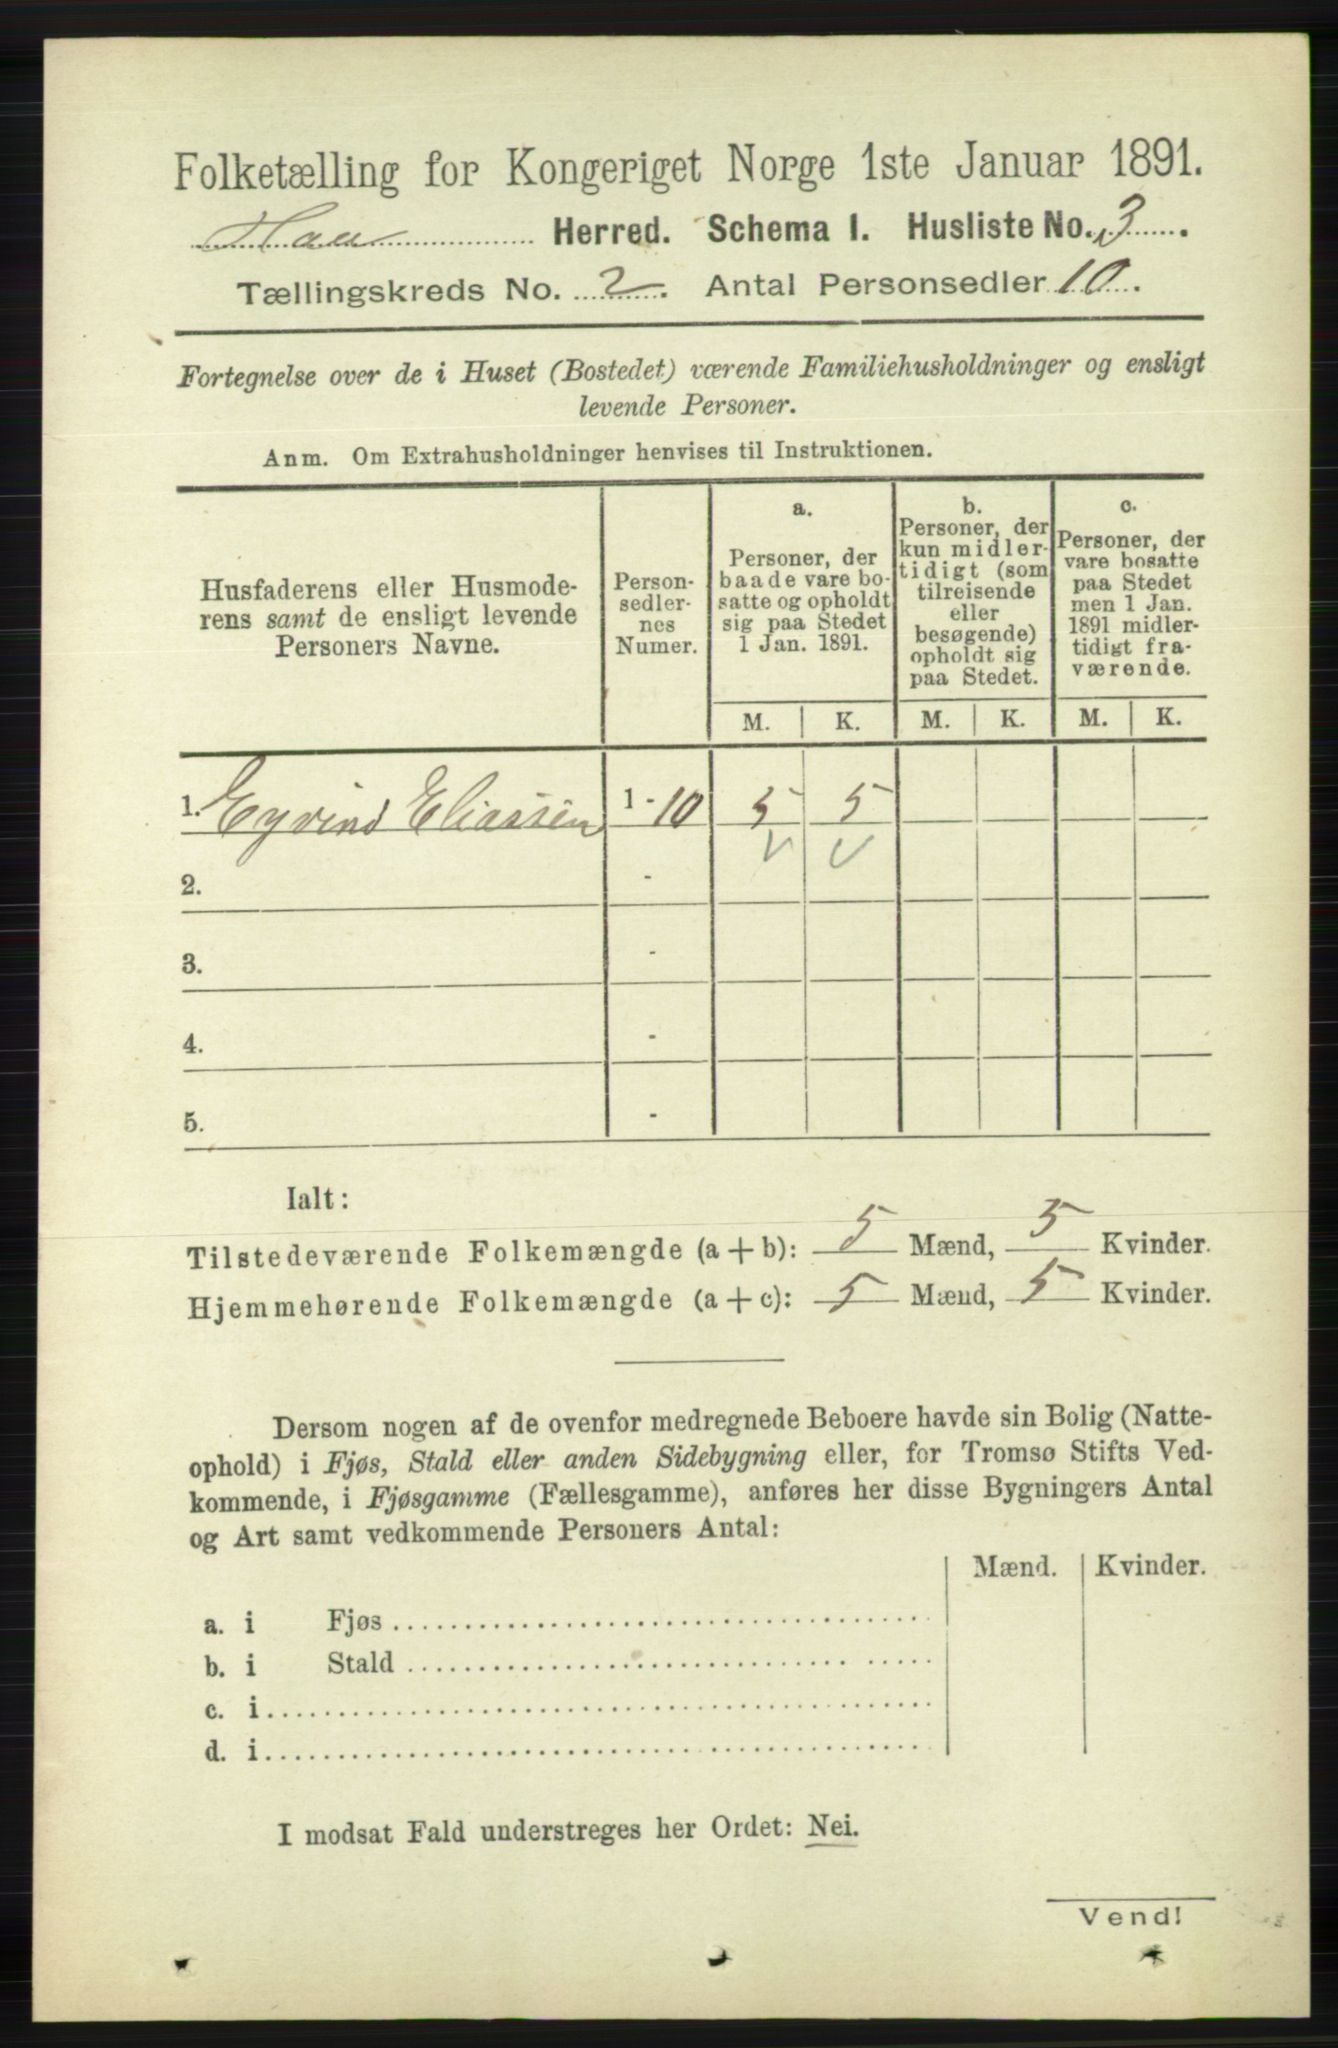 Folketælling for Kongeriget Norge 1ste Januar 1891.
Haa Herred. Schema I. Husliste No. 3.
Tællingskreds No. 2. Antal Personsedler 10.
Fortegnelse over de i Huset (Bostedet) værende Familiehusholdninger og ensligt
levende Personer.
Anm. Om Extrahusholdninger henvises til Instruktionen.
Husfaderens eller Husmode-
rens samt de ensligt levende
Personers Navne.
Person-
sedler-
nes
Numer.
a.
Personer, der
baade vare bo-
satte og opholdt
sig paa Stedet
1 Jan. 1891.
b.
Personer, der
kun midler-
tidigt (som
tilreisende
eller
besøgende)
opholdt sig
paa Stedet.
c.
Personer, der
vare bosatte
paa Stedet
men 1 Jan.
1891 midler-
tidigt fra-
værende.
M. K. M. K. M. K.
1. Eyvind Eliassen 1 - 10 5 5
2. -
3. -
4. -
5. -
Ialt:
Tilstedeværende Folkemængde (a + b): 5 Mænd, 5 Kvinder.
Hjemmehørende Folkemængde (a + c): 5 Mænd, 5 Kvinder.
Dersom nogen af de ovenfor medregnede Beboere havde sin Bolig (Natte-
ophold) i Fjøs, Stald eller anden Sidebygning eller, for Tromsø Stifts Ved-
kommende, i Fjøsgamme (Fællesgamme), anføres her disse Bygningers Antal
og Art samt vedkommende Personers Antal:
Mænd. Kvinder.
a. i Fjøs
b. i Stald
c. i
d. i
I modsat Fald understreges her Ordet: Nei.
Vend!